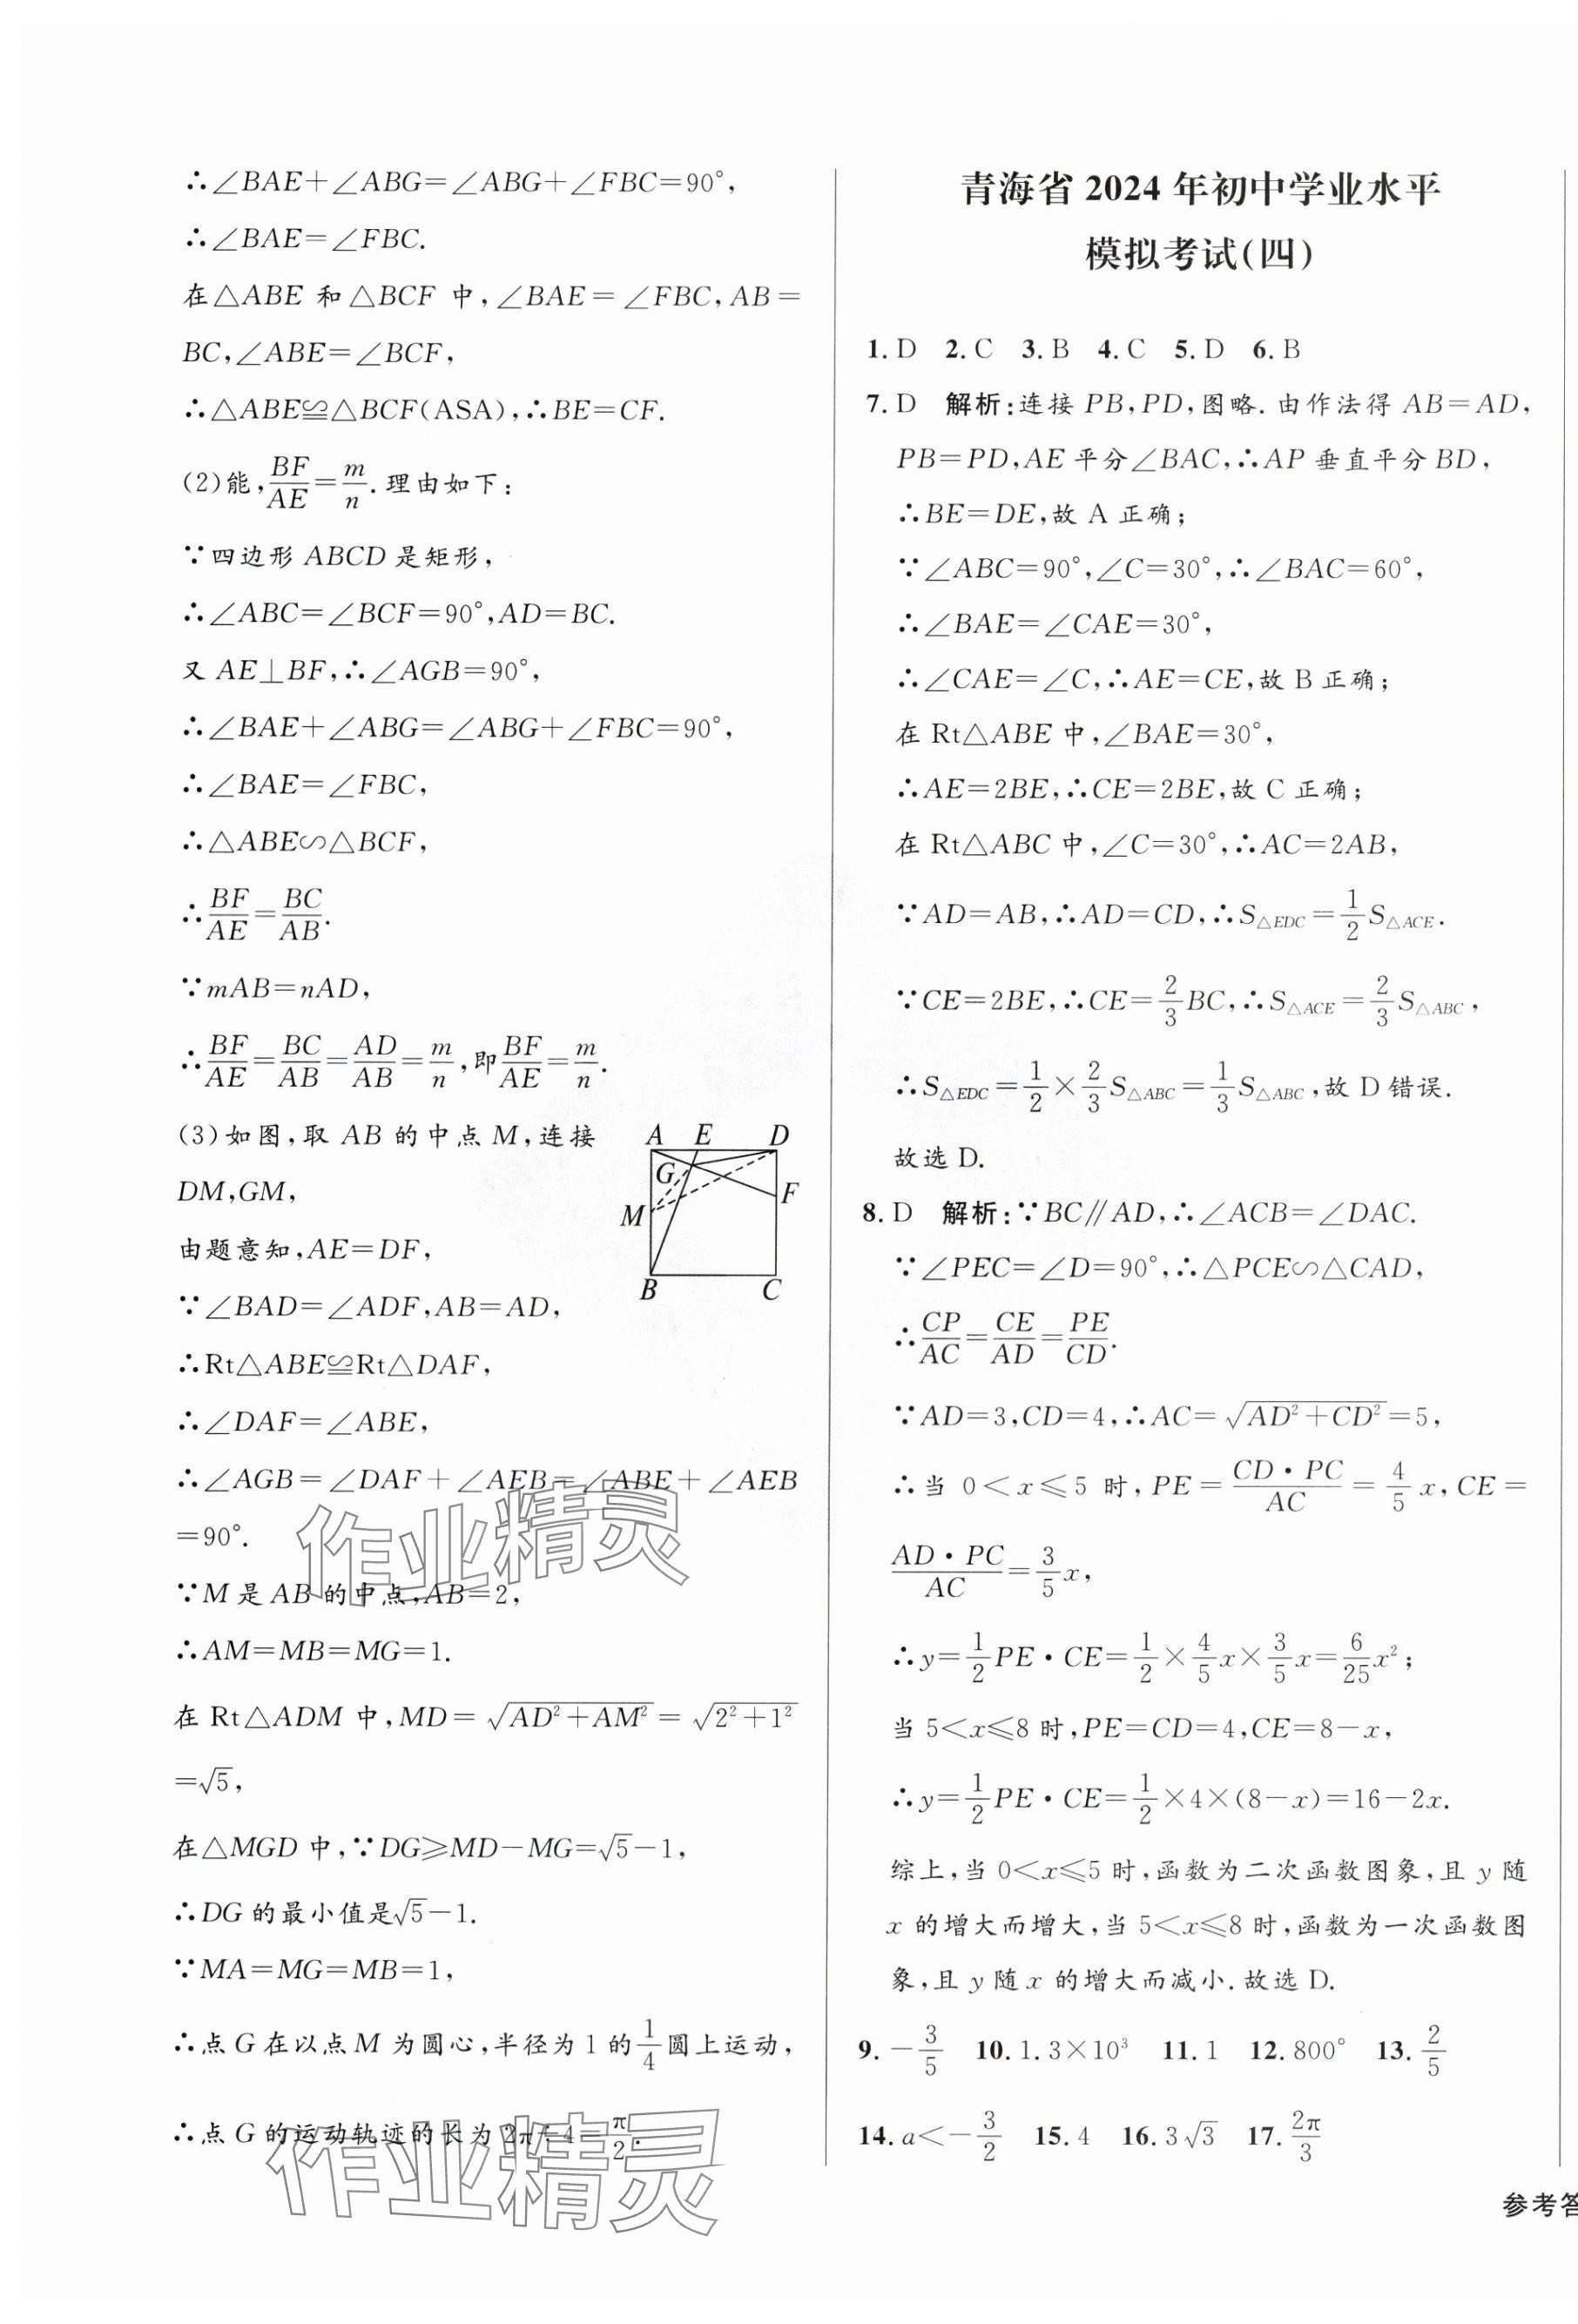 ∴∠BAE+∠ABG=∠ABG+∠FBC=90°,
∴∠BAE=∠FBC.
在△ABE 和△BCF 中,∠BAE=∠FBC,AB=
BC,∠ABE=∠BCF,
∴△ABE≌△BCF(ASA),∴BE=CF.
(2)能,BF/AE=m/n.理由如下:
∵四边形 ABCD 是矩形,
∴∠ABC=∠BCF=90°,AD=BC.
又 AE⊥BF,∴∠AGB=90°,
∴∠BAE+∠ABG=∠ABG+∠FBC=90°,
∴∠BAE=∠FBC,
∴△ABE∽△BCF,
∴BF/AE=BC/AB.
∵mAB=nAD,
∴BF/AE=BC/AB=AD/AB=m/n,即BF/AE=m/n.
(3)如图,取 AB 的中点 M,连接
DM,GM,
由题意知,AE=DF,
∵∠BAD=∠ADF,AB=AD,
A E D
G
F
M
B C
∴Rt△ABE≌Rt△DAF,
∴∠DAF=∠ABE,
∴∠AGB=∠DAF+∠AEB=∠ABE+∠AEB
=90°.
∵M 是 AB 的中点,AB=2,
∴AM=MB=MG=1.
在 Rt△ADM 中,MD=√(AD²+AM²)=√(2²+1²)
=√5,
在△MGD 中,∵DG≥MD-MG=√5-1,
∴DG 的最小值是√5-1.
∵MA=MG=MB=1,
∴点 G 在以点 M 为圆心,半径为 1 的1/4圆上运动,
∴点 G 的运动轨迹的长为 2π÷4=π/2.
作业精灵
作业精灵
青海省 2024 年初中学业水平
模拟考试(四)
1. D 2. C 3. B 4. C 5. D 6. B
7. D 解析:连接 PB,PD,图略.由作法得 AB=AD,
PB=PD,AE 平分∠BAC,∴AP 垂直平分 BD,
∴BE=DE,故 A 正确;
∵∠ABC=90°,∠C=30°,∴∠BAC=60°,
∴∠BAE=∠CAE=30°,
∴∠CAE=∠C,∴AE=CE,故 B 正确;
在 Rt△ABE 中,∠BAE=30°,
∴AE=2BE,∴CE=2BE,故 C 正确;
在 Rt△ABC 中,∠C=30°,∴AC=2AB,
∵AD=AB,∴AD=CD,∴S△EDC=1/2S△ACE.
∵CE=2BE,∴CE=2/3BC,∴S△ACE=2/3S△ABC,
∴S△EDC=1/2×2/3S△ABC=1/3S△ABC,故 D 错误.
故选 D.
8. D 解析:∵BC∥AD,∴∠ACB=∠DAC.
∵∠PEC=∠D=90°,∴△PCE∽△CAD,
∴CP/AC=CE/AD=PE/CD.
∵AD=3,CD=4,∴AC=√(AD²+CD²)=5,
∴当 0<x≤5 时,PE=CD·PC/AC=4/5x,CE=
AD·PC/AC=3/5x,
∴y=1/2PE·CE=1/2×4/5x×3/5x=6/25x²;
当 5<x≤8 时,PE=CD=4,CE=8-x,
∴y=1/2PE·CE=1/2×4×(8-x)=16-2x.
综上,当 0<x≤5 时,函数为二次函数图象,且 y 随
x 的增大而增大,当 5<x≤8 时,函数为一次函数图
象,且 y 随 x 的增大而减小.故选 D.
9. -3/5 10. 1.3×10³ 11. 1 12. 800° 13. 2/5
14. a<-3/2 15. 4 16. 3√3 17. 2π/3
参考答